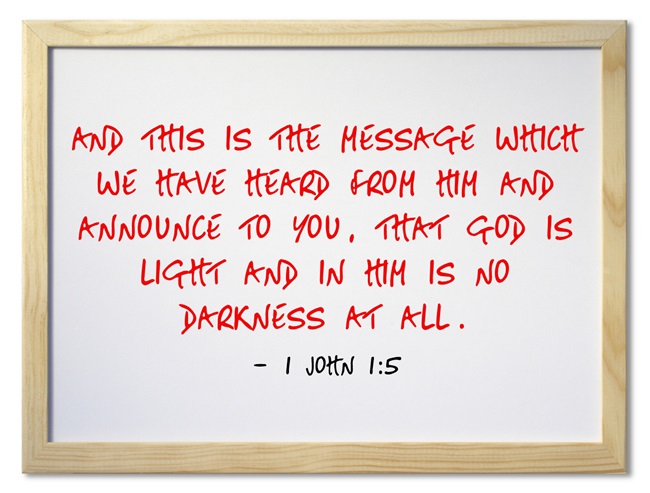 AND THIS IS THE MESSAGE WHICH
WE HAVE HEARD FROM HIM AND
ANNOUNCE TO YOU, THAT GOD IS
LIGHT AND IN HIM IS NO
DARKNESS AT ALL.
- 1 JOHN 1:5